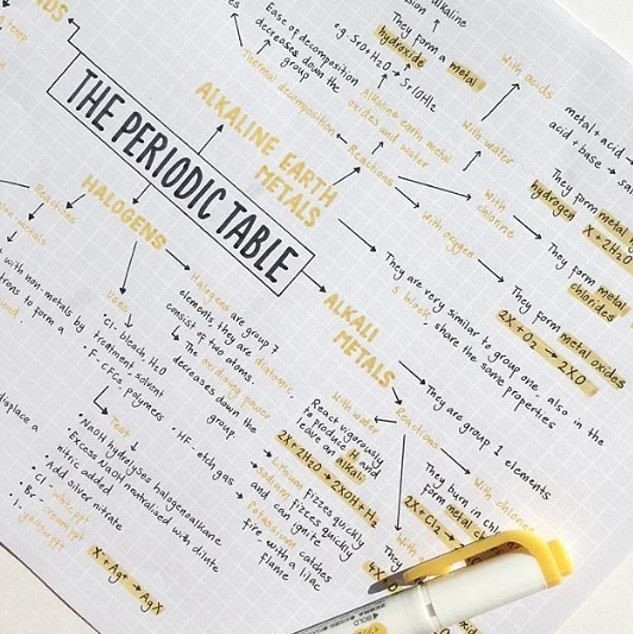 THE PERIODIC TABLE
ALKALINE EARTH
METALS
Ease of decomposition
decreases down the
group
Thermal decomposition
e.g. SrO + H₂O → Sr(OH)₂
Alkaline earth metal
oxides and water
Reactions
alkaline
They form a metal
hydroxide
With acids
metal + acid →
acid + base →
With water
They form metal
hydrogen
X + 2H₂O
With chlorine
They form metal
chlorides
With oxygen
They form metal oxides
2X + O₂ → 2XO
They are very similar to group one, also in the
s block, share the same properties
HALOGENS
Reactions
metals
with non-metals by
to form a
Uses
• Cl - bleach, H₂O
treatment, solvent
• F - CFCs, polymers, HF - etch gas
Halogens are group 7
elements they are diatomic,
consist of two atoms.
The oxidising power
decreases down the
group.
Test
• NaOH hydrolyses halogenoalkane
• Excess NaOH neutralised with dilute
nitric added
• Add silver nitrate
• Cl - white ppt
• Br - cream ppt
• I -
X⁻ + Ag⁺ → AgX
displace a
ALKALI
METALS
They are group 1 elements
Reactions
With water
React vigorously
to produce H and
leave an alkali
2X + 2H₂O → 2XOH + H₂
Lithium fizzes quickly
sodium fizzes quickly
and can ignite
Potassium catches
fire, with a lilac
flame
With chlorine
They burn in
form metal
2X + Cl₂ →
They
4X
BOLD
ZEBRA